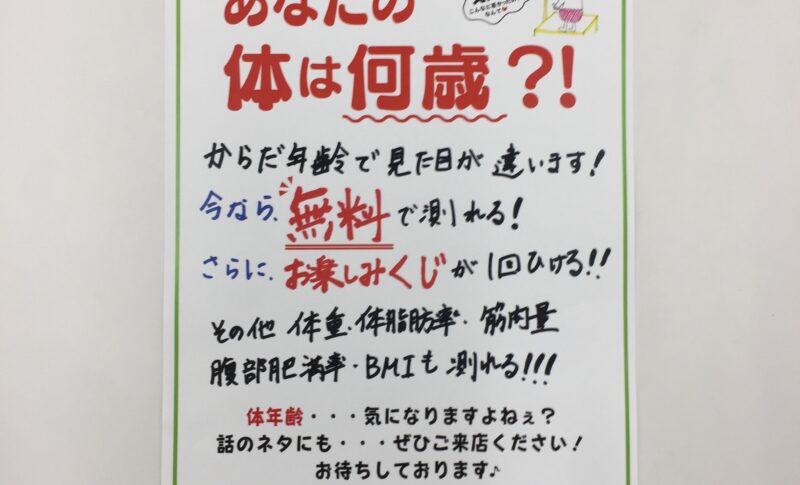 こんなに若かったの
なんて
あなたの
体は何歳?!
からだ年齢で見た目が違います!
今なら、無料で測れる!
さらに、お楽しみくじが1回ひける!!
その他 体重・体脂肪率・筋肉量
腹部肥満率・BMIも測れる!!!
体年齢・・・気になりますよねぇ?
話のネタにも・・・ぜひご来店ください!
お待ちしております♪